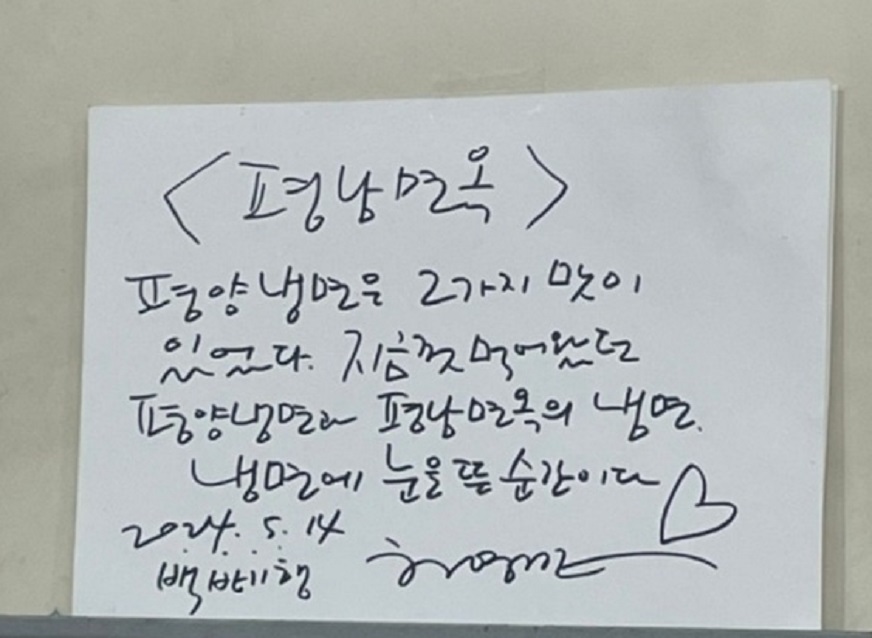 <평남면옥>
평양냉면은 2가지 맛이
있었다. 지금껏 먹어왔던
평양냉면과 평남면옥의 냉면.
냉면에 눈을 뜬 순간이다
2024. 5. 14
백반기행